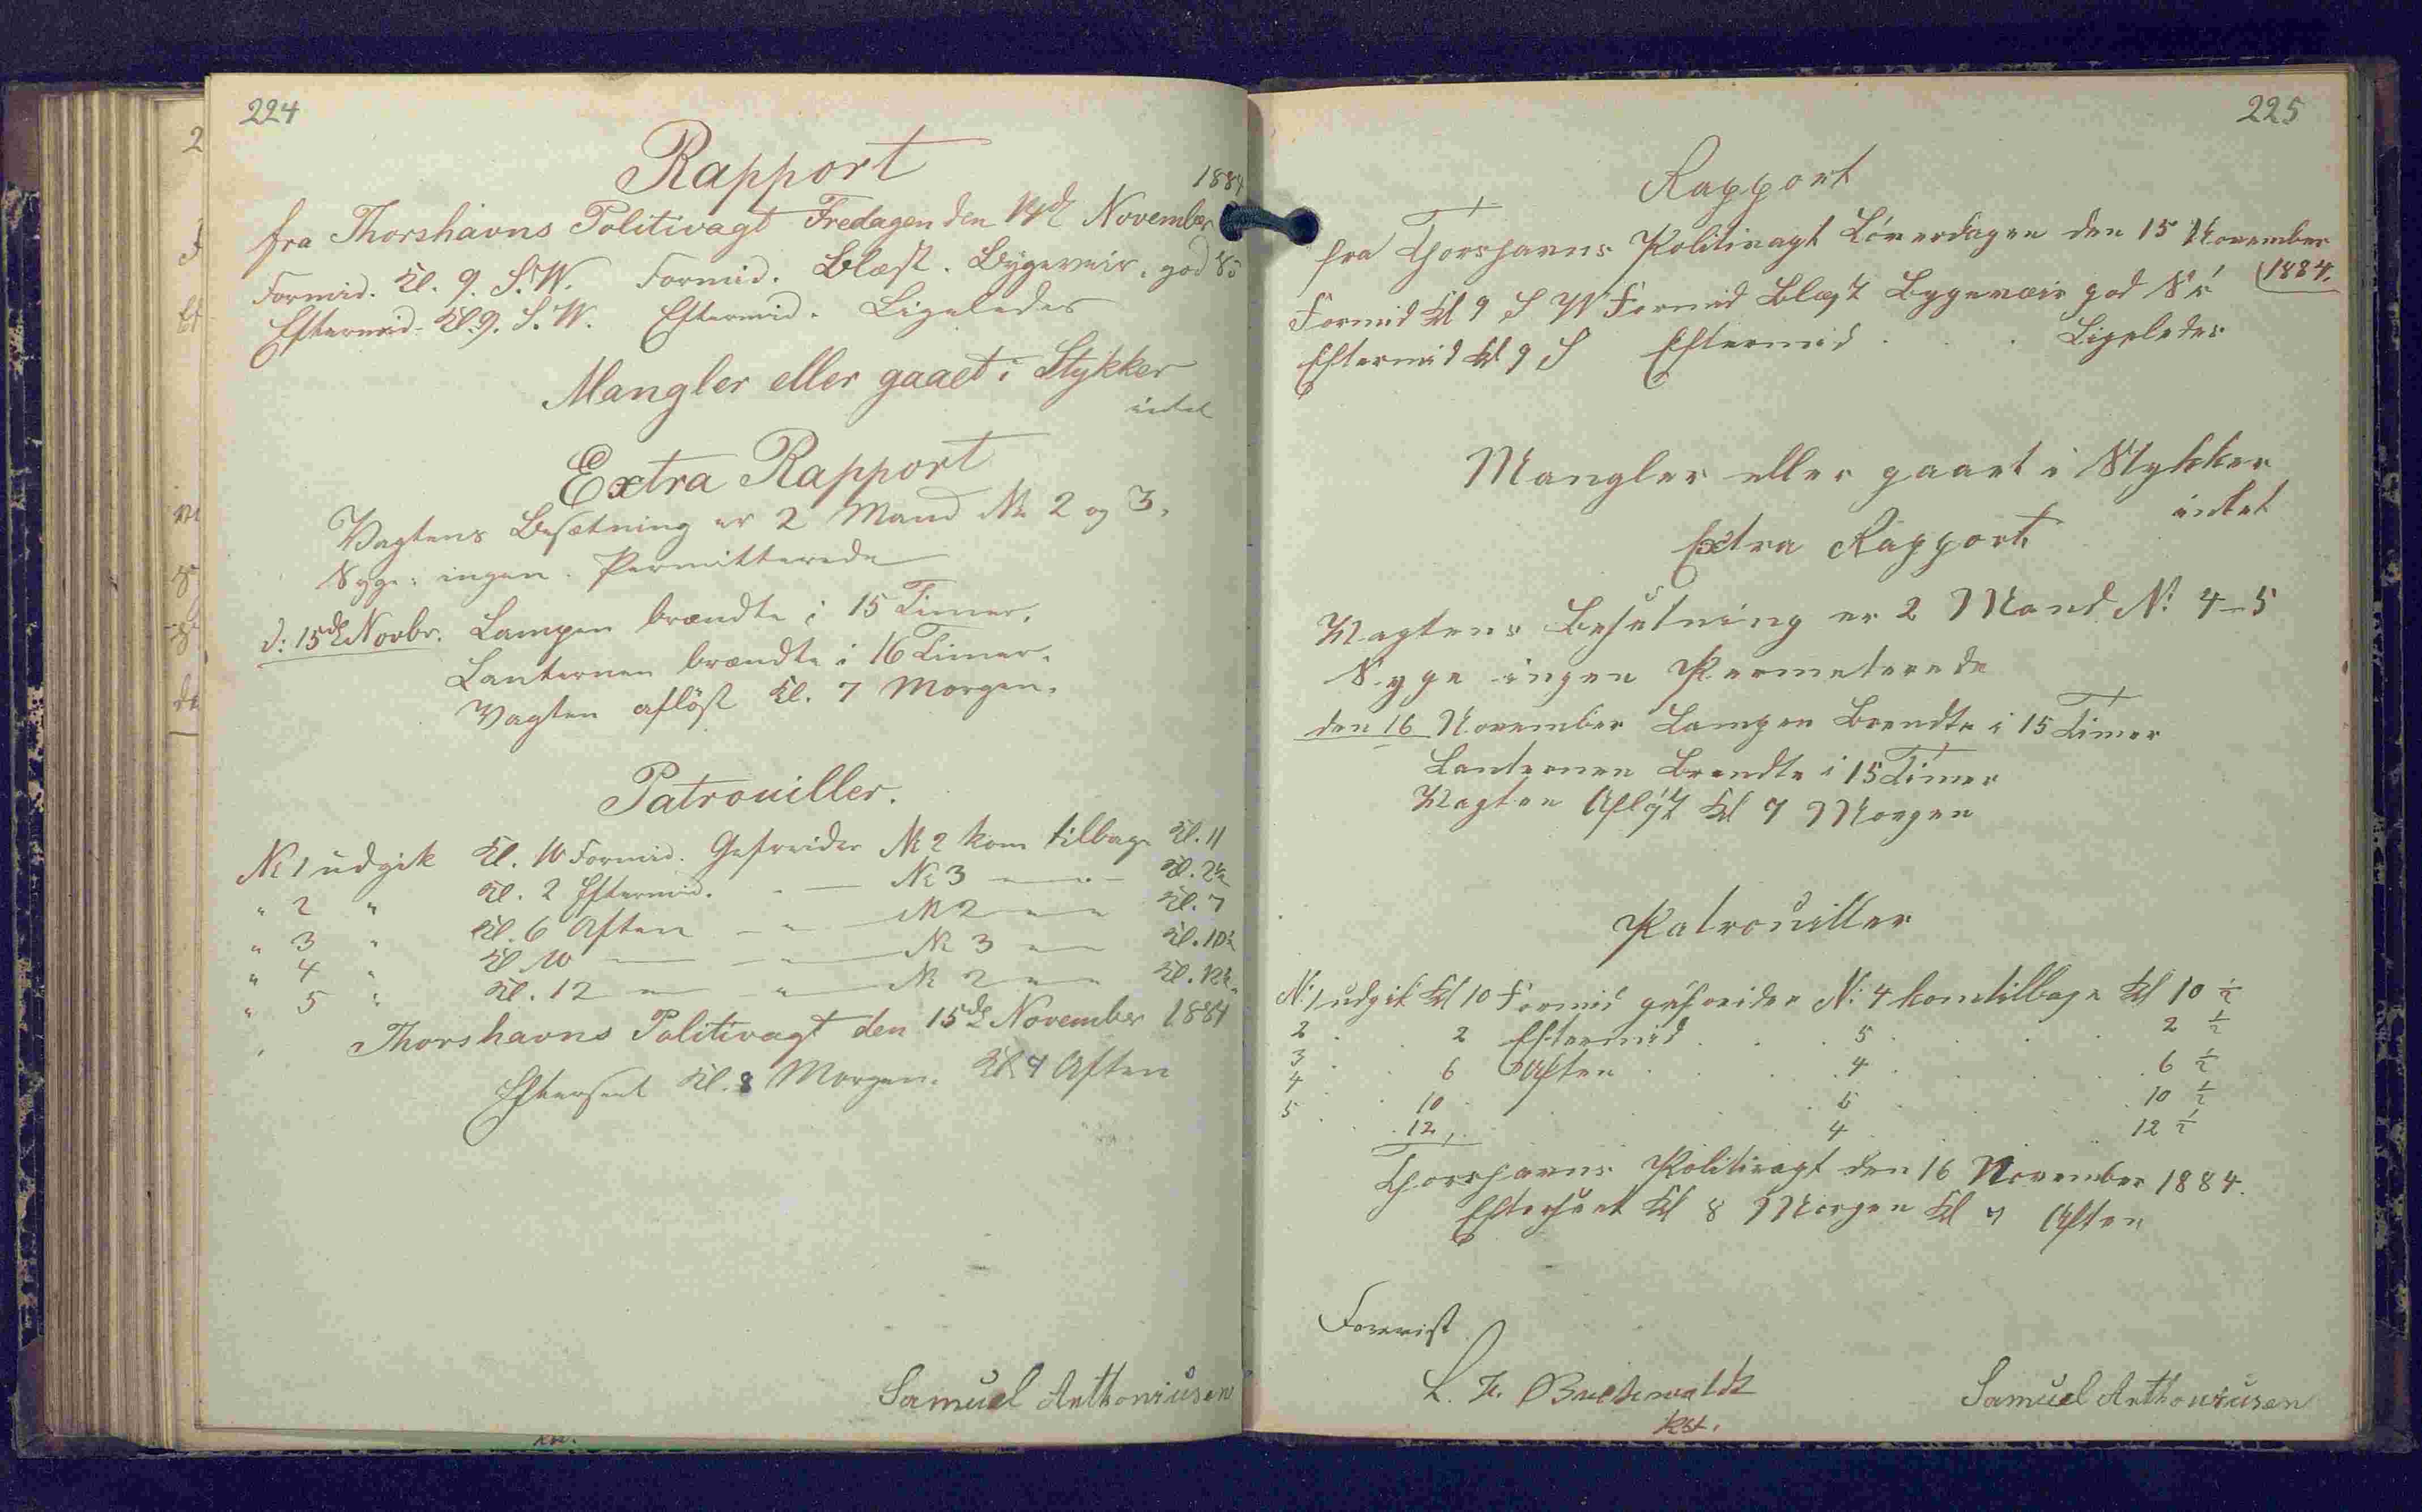 224
Rapport
1884
fra Thorshavns Politivagt Fredagen den 14de November
Formid. Kl. 9. S.W. Formid. Blæst. Bygeveir, god Sö
Eftermid. Kl. 9. S.W. Eftermid. Ligeledes
Mangler eller gaaet i Stykker
intet
Extra Rapport
Vagtens Besætning er 2 Mand No 2 og 3.
Syge: ingen. Permitterede —
d: 15de Novbr. Lampen brændte i 15 Timer.
Lanternen brændte i 16 Timer.
Vagten aflöst Kl. 7 Morgen.
Patrouiller.
No 1 udgik Kl. 10 Formid. Gefreider No 2 kom tilbage Kl. 11
" 2 " Kl. 2 Eftermid. " — No 3 — " — Kl. 2½
" 3 " Kl. 6 Aften — " — No 2 — " — Kl. 7
" 4 " Kl. 10 — — " — No 3 — " — Kl. 10½
" 5 " Kl. 12 — " — " — No 2 — " — Kl. 12½
Thorshavns Politivagt den 15de November 1884
Efterseet Kl. 8 Morgen. Kl. 7 Aften
Samuel Anthoniusen
225
Rapport
fra Thorshavns Politivagt Löverdagen den 15 November
1884.
Formid Kl 9 S W Formid Blæst Bygeveir god Sö
Eftermid Kl 9 S Eftermid . . Ligeledes
Mangler eller gaaet i Stykker
intet
Extra Rapport.
Vagtens Besetning er 2 Mand No 4 - 5
Syge ingen Permeterede
den 16 November Lampen Brendte i 15 Timer
Lanternen Brendte i 15 Timer
Vagten Aflöst Kl 7 Morgen
Patrouiller
No 1 udgik Kl 10 Formid gefreider No 4 kom tilbage Kl 10 ½
2 . . 2 Eftermid . . . 5 . . . 2 ½
3 . . 6 Aften . . . 4 . . . 6 ½
4 . . 10 . . . 5 . . . 10 ½
5 . . 12 . . . 4 . . . 12 ½
Thorshavns Politivagt den 16 November 1884.
Efterseet Kl 8 Morgen Kl 7 Aften
Forevist
Samuel Anthoniusen